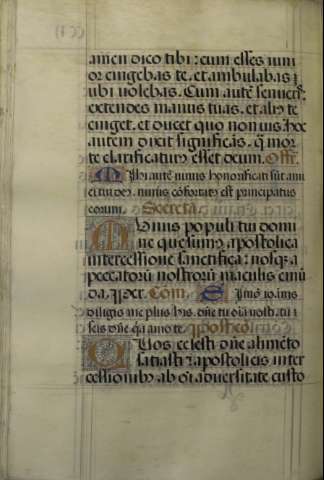 amen dico tibi: cum esses iuni
or cingebas te. et ambulabas
ubi uolebas. Cum autē senuer̄.
extendes manus tuas. et aliꝰ te
cinget. et ducet quo non uis. hoc
autem dixit significās. q̄ mor
te clarificaturꝰ esset deum. Offr̄.
Mihi autē nimis honorificati sūt ami
ci tui deꝰ. nimis cōfortatꝰ est principatus
eorum. Secreta.
Munus populi tui domi
ne quesumꝰ apostolica
intercessione sanctifica: nosqꝫ a
peccatorū nostrorū maculis emū
da. Com̄. Simō ioānis
diligis me plus his. dn̄e tu oīa nosti. tu
scis dn̄e q̄a amo te. postcō
Quos celesti dn̄e alimēto
satiasti apostolicis inter
cessionibꝰ ab oī aduersitate custo